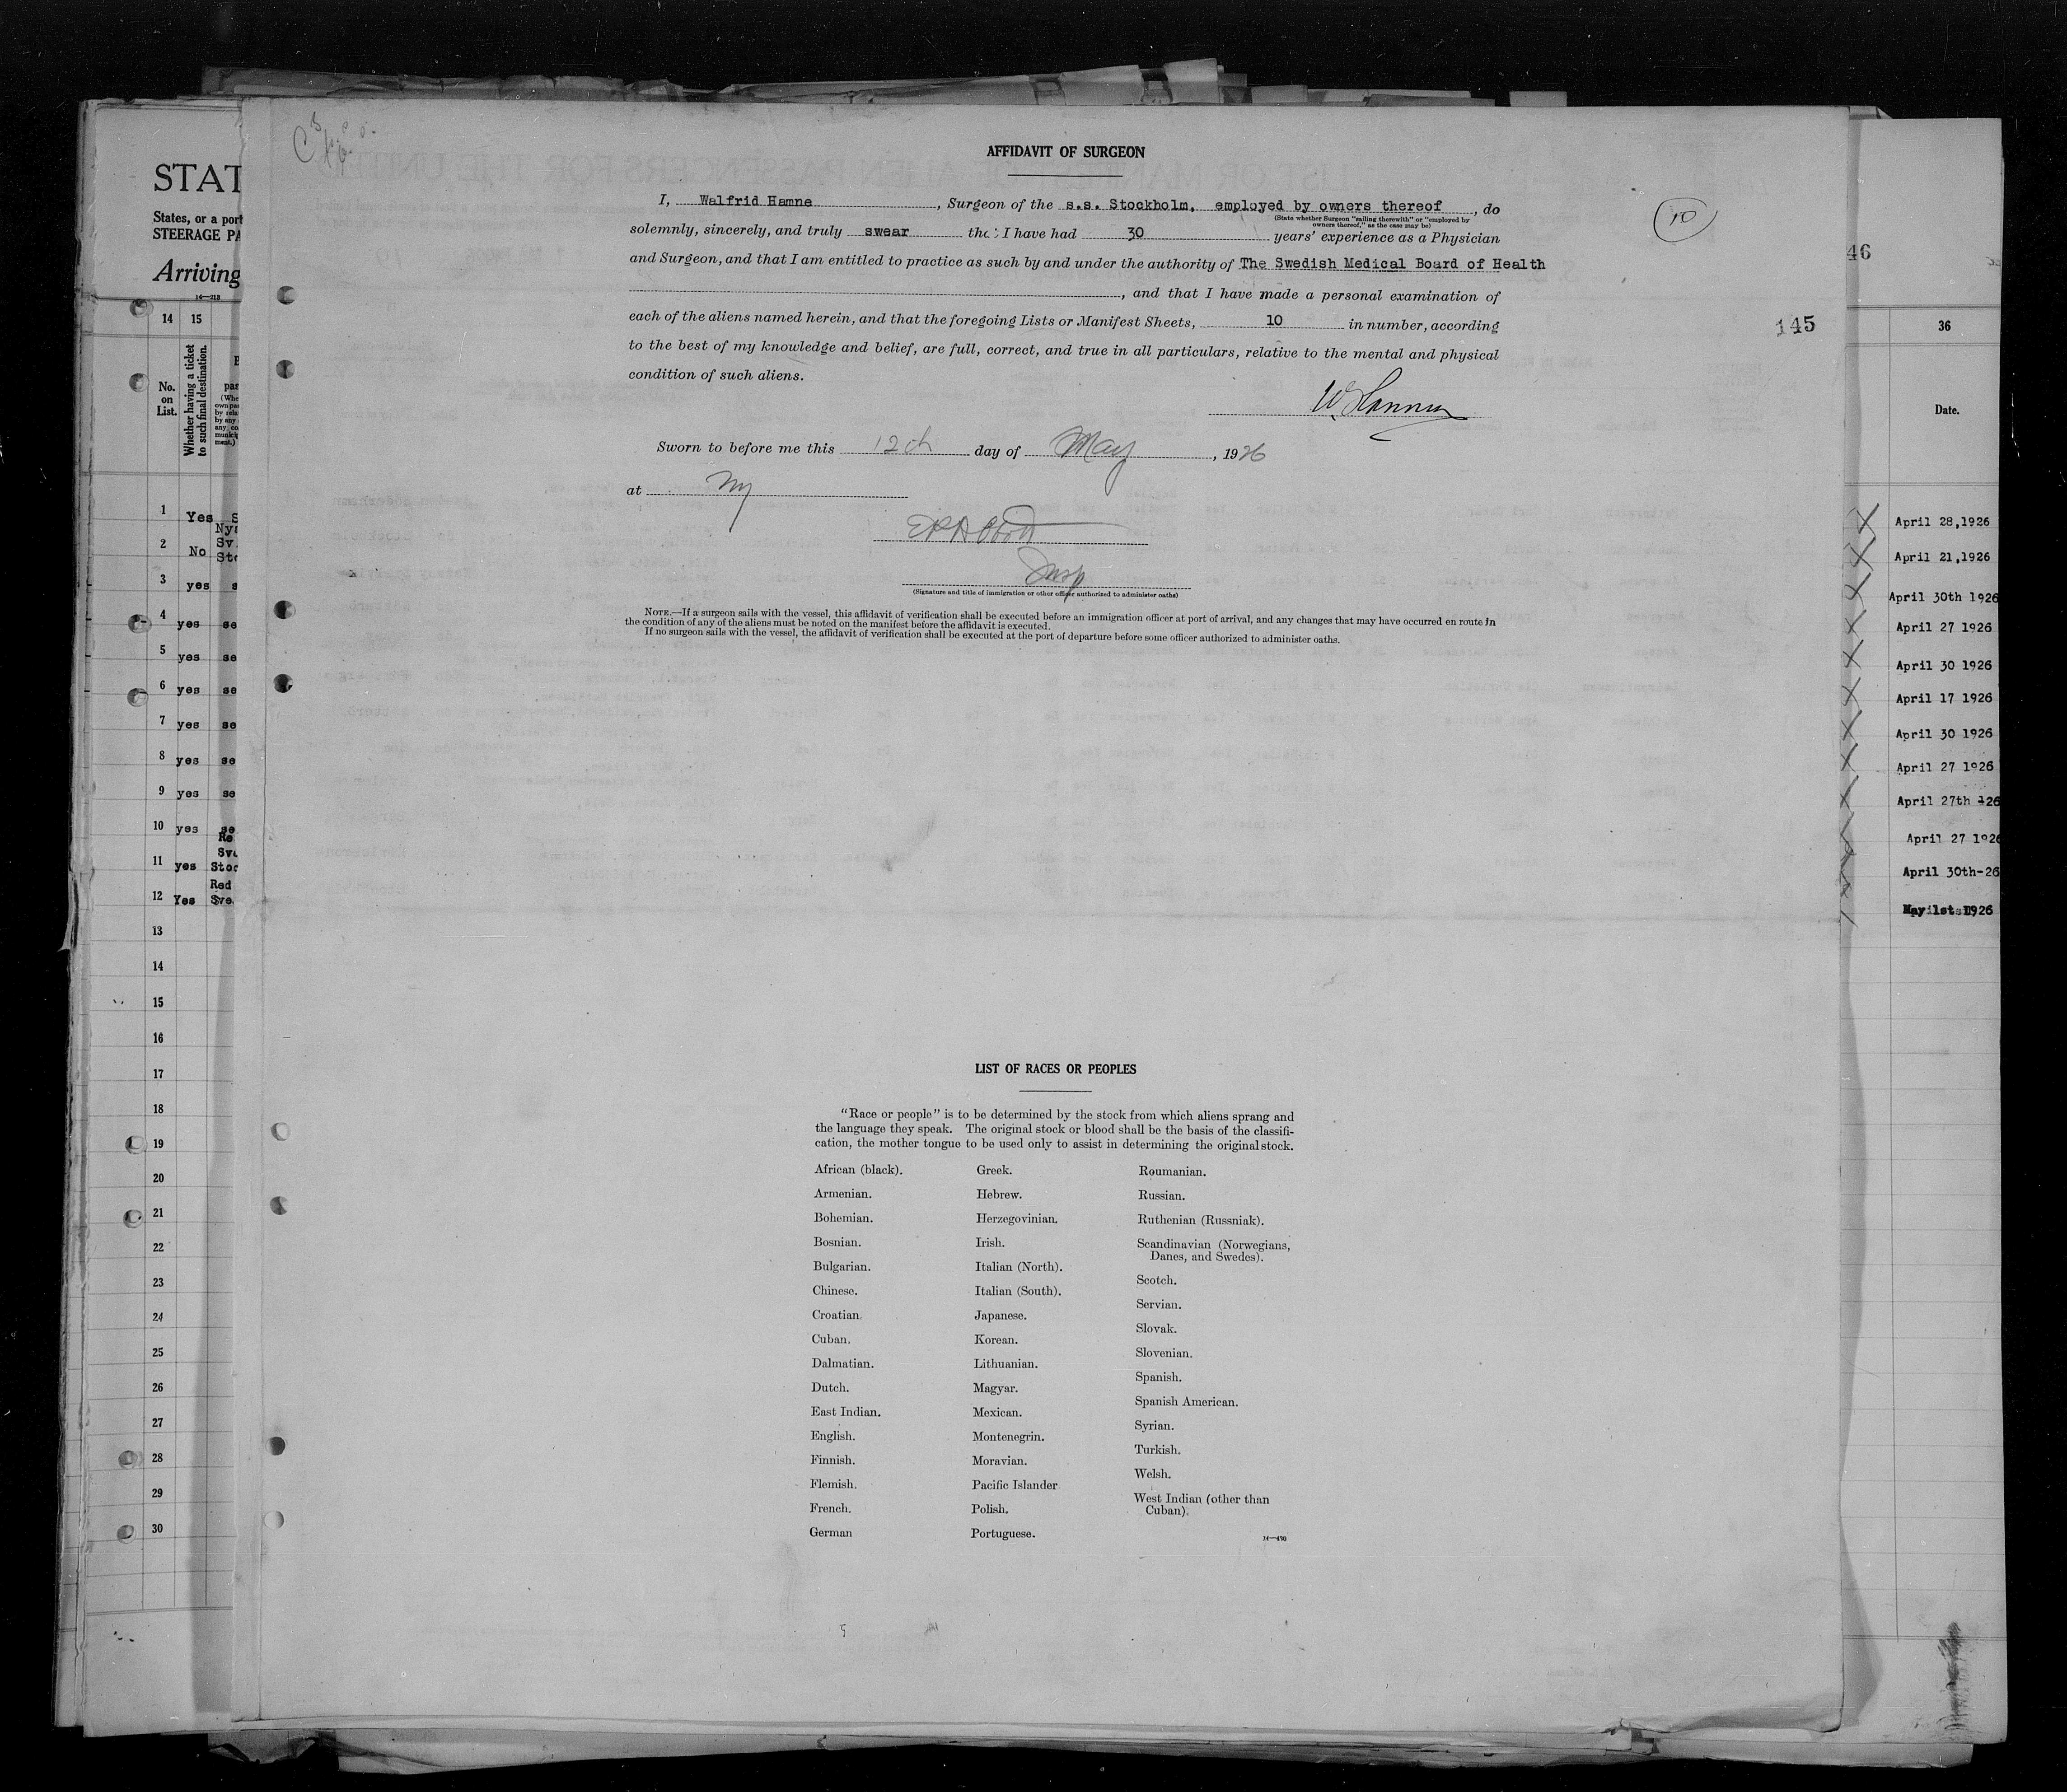 STAT
States, or a port
STEERAGE PA
Arriving
14—213
14 15
No. on List.
Whether having a ticket to such final destination.
1 Yes S
Nyr
2 No Sv.
Sto
3 yes s
4 yes se
5 yes se
6 yes se
7 yes se
8 yes se
9 yes se
10 yes se
Re
Sv
11 yes Stoc
Red
12 Yes Sve
13
14
15
16
17
18
19
20
21
22
23
24
25
26
27
28
29
30
AFFIDAVIT OF SURGEON
10
I, Walfrid Hamne, Surgeon of the s.s. Stockholm, employed by owners thereof, do
(State whether Surgeon "sailing therewith" or "employed by
owners thereof," as the case may be)
solemnly, sincerely, and truly swear that I have had 30 years' experience as a Physician
and Surgeon, and that I am entitled to practice as such by and under the authority of The Swedish Medical Board of Health
, and that I have made a personal examination of
each of the aliens named herein, and that the foregoing Lists or Manifest Sheets, 10 in number, according
to the best of my knowledge and belief, are full, correct, and true in all particulars, relative to the mental and physical
condition of such aliens.
145
Sworn to before me this 12th day of May, 1926
at NY
Insp
(Signature and title of immigration or other officer authorized to administer oaths)
NOTE.—If a surgeon sails with the vessel, this affidavit of verification shall be executed before an immigration officer at port of arrival, and any changes that may have occurred en route in
the condition of any of the aliens must be noted on the manifest before the affidavit is executed.
If no surgeon sails with the vessel, the affidavit of verification shall be executed at the port of departure before some officer authorized to administer oaths.
LIST OF RACES OR PEOPLES
"Race or people" is to be determined by the stock from which aliens sprang and
the language they speak. The original stock or blood shall be the basis of the classifi-
cation, the mother tongue to be used only to assist in determining the original stock.
African (black).
Armenian.
Bohemian.
Bosnian.
Bulgarian.
Chinese.
Croatian.
Cuban.
Dalmatian.
Dutch.
East Indian.
English.
Finnish.
Flemish.
French.
German
Greek.
Hebrew.
Herzegovinian.
Irish.
Italian (North).
Italian (South).
Japanese.
Korean.
Lithuanian.
Magyar.
Mexican.
Montenegrin.
Moravian.
Pacific Islander
Polish.
Portuguese.
Roumanian.
Russian.
Ruthenian (Russniak).
Scandinavian (Norwegians,
Danes, and Swedes).
Scotch.
Servian.
Slovak.
Slovenian.
Spanish.
Spanish American.
Syrian.
Turkish.
Welsh.
West Indian (other than
Cuban).
14—490
46
36
Date.
April 28,1926
April 21,1926
April 30th 1926
April 27 1926
April 30 1926
April 17 1926
April 30 1926
April 27 1926
April 27th -26
April 27 1926
April 30th-26
May 1st 1926